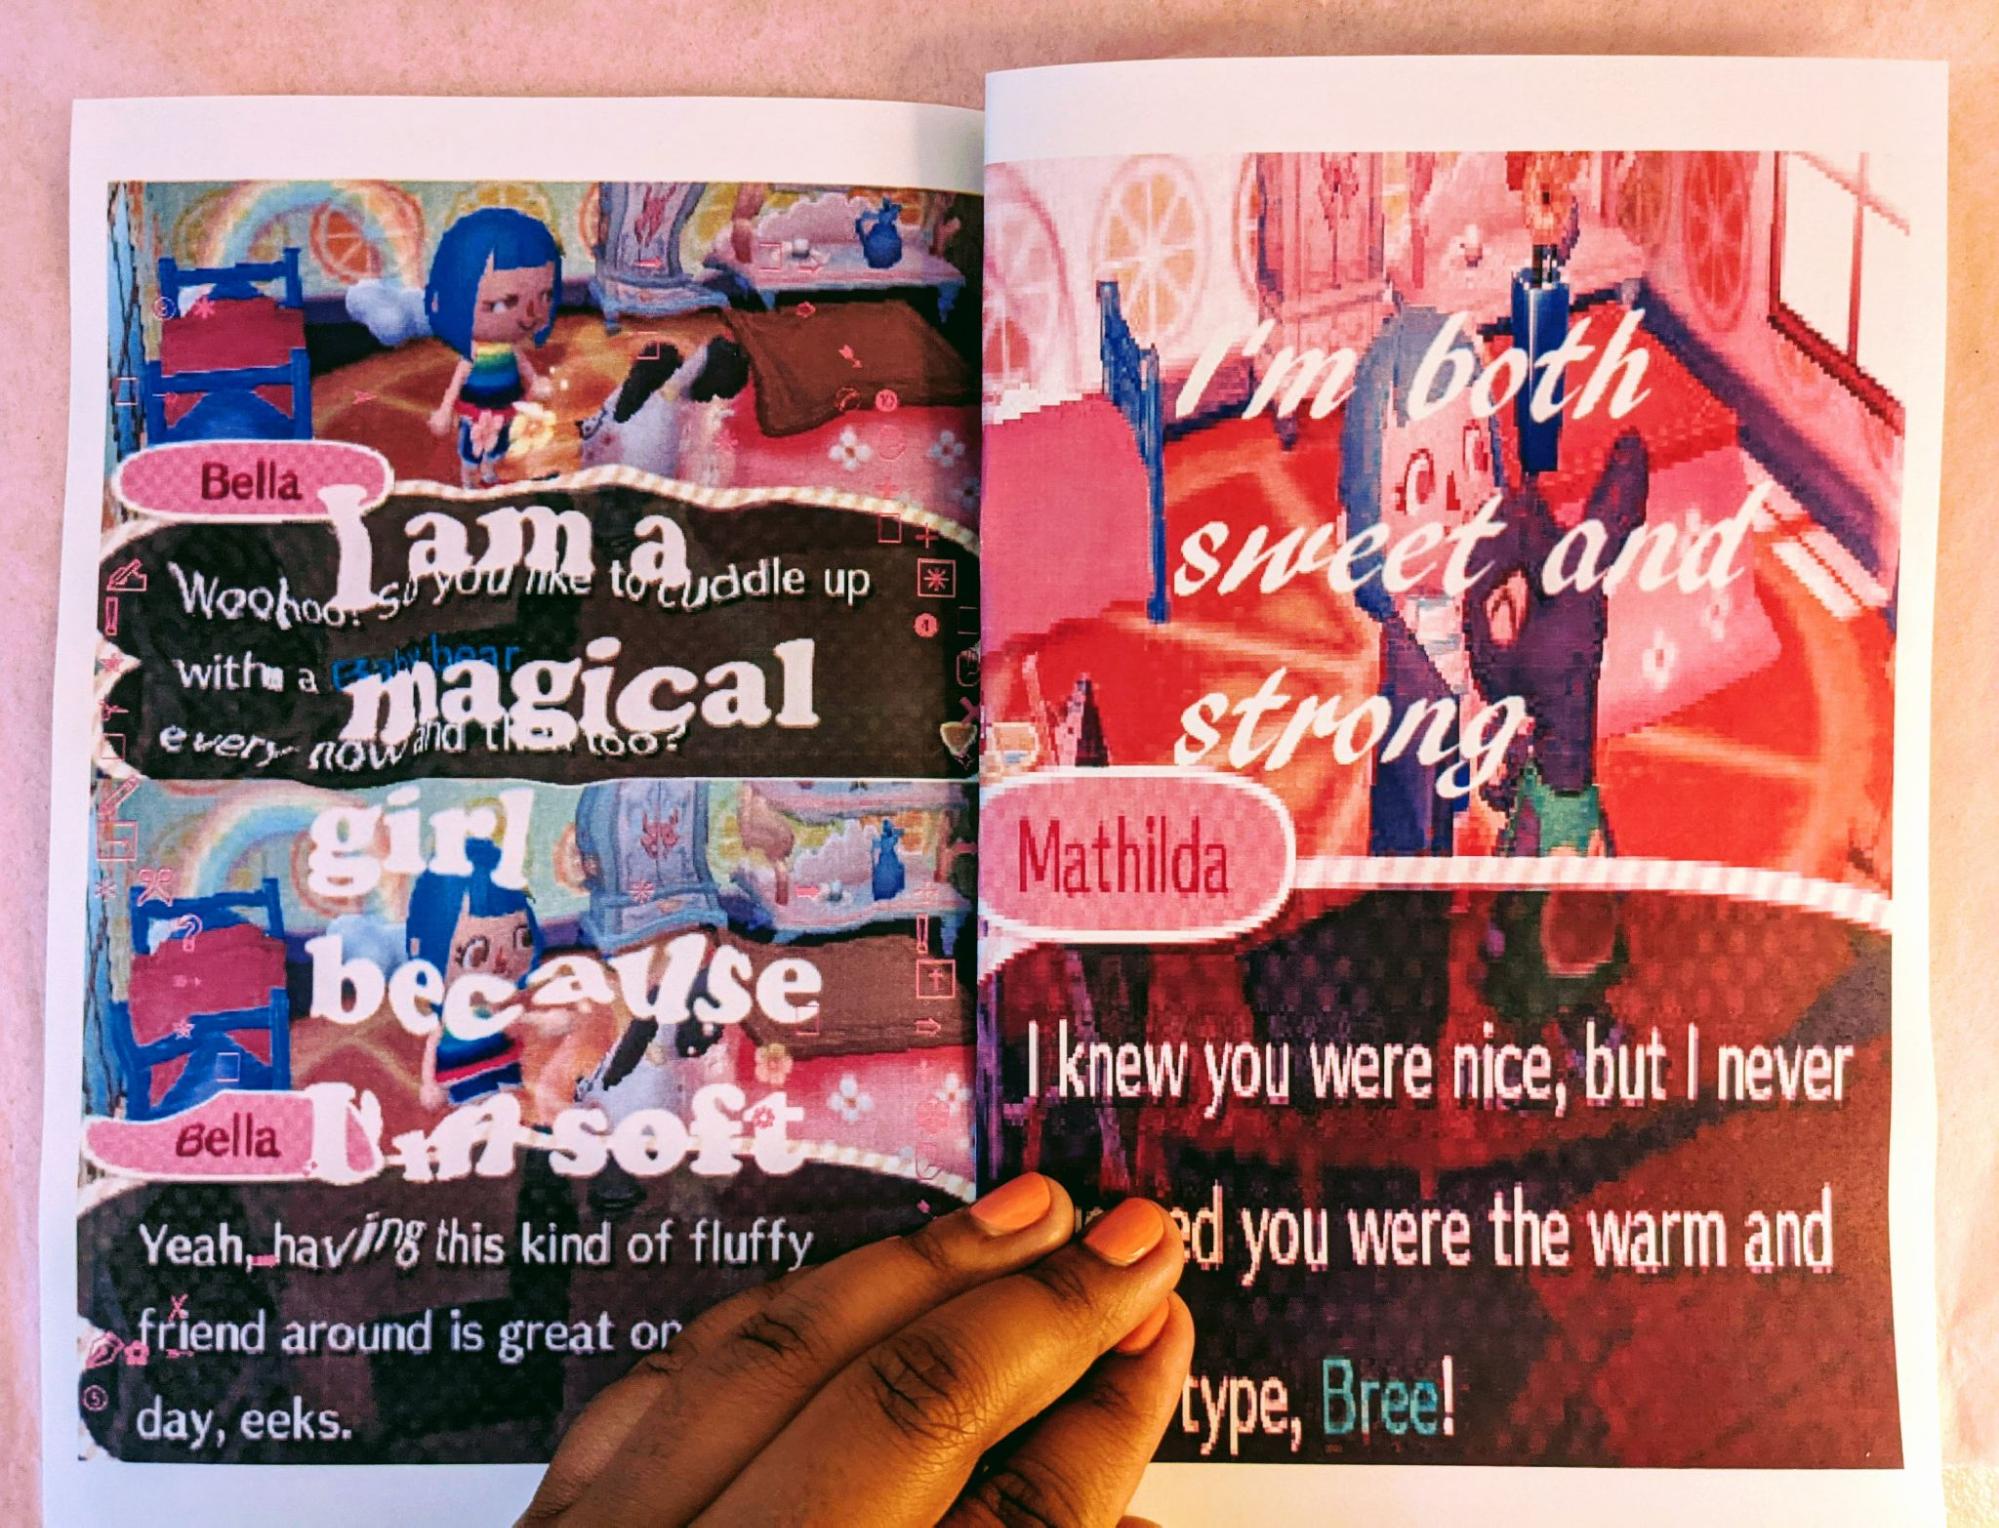 Bella
I am a
Woohoo! So you like to cuddle up
with a Baby bear
magical
every now and then too?
girl
because
Bella
I'm soft
Yeah, having this kind of fluffy
friend around is great on
day, eeks.
I'm both
sweet and
strong
Mathilda
I knew you were nice, but I never
you were the warm and
type, Bree!